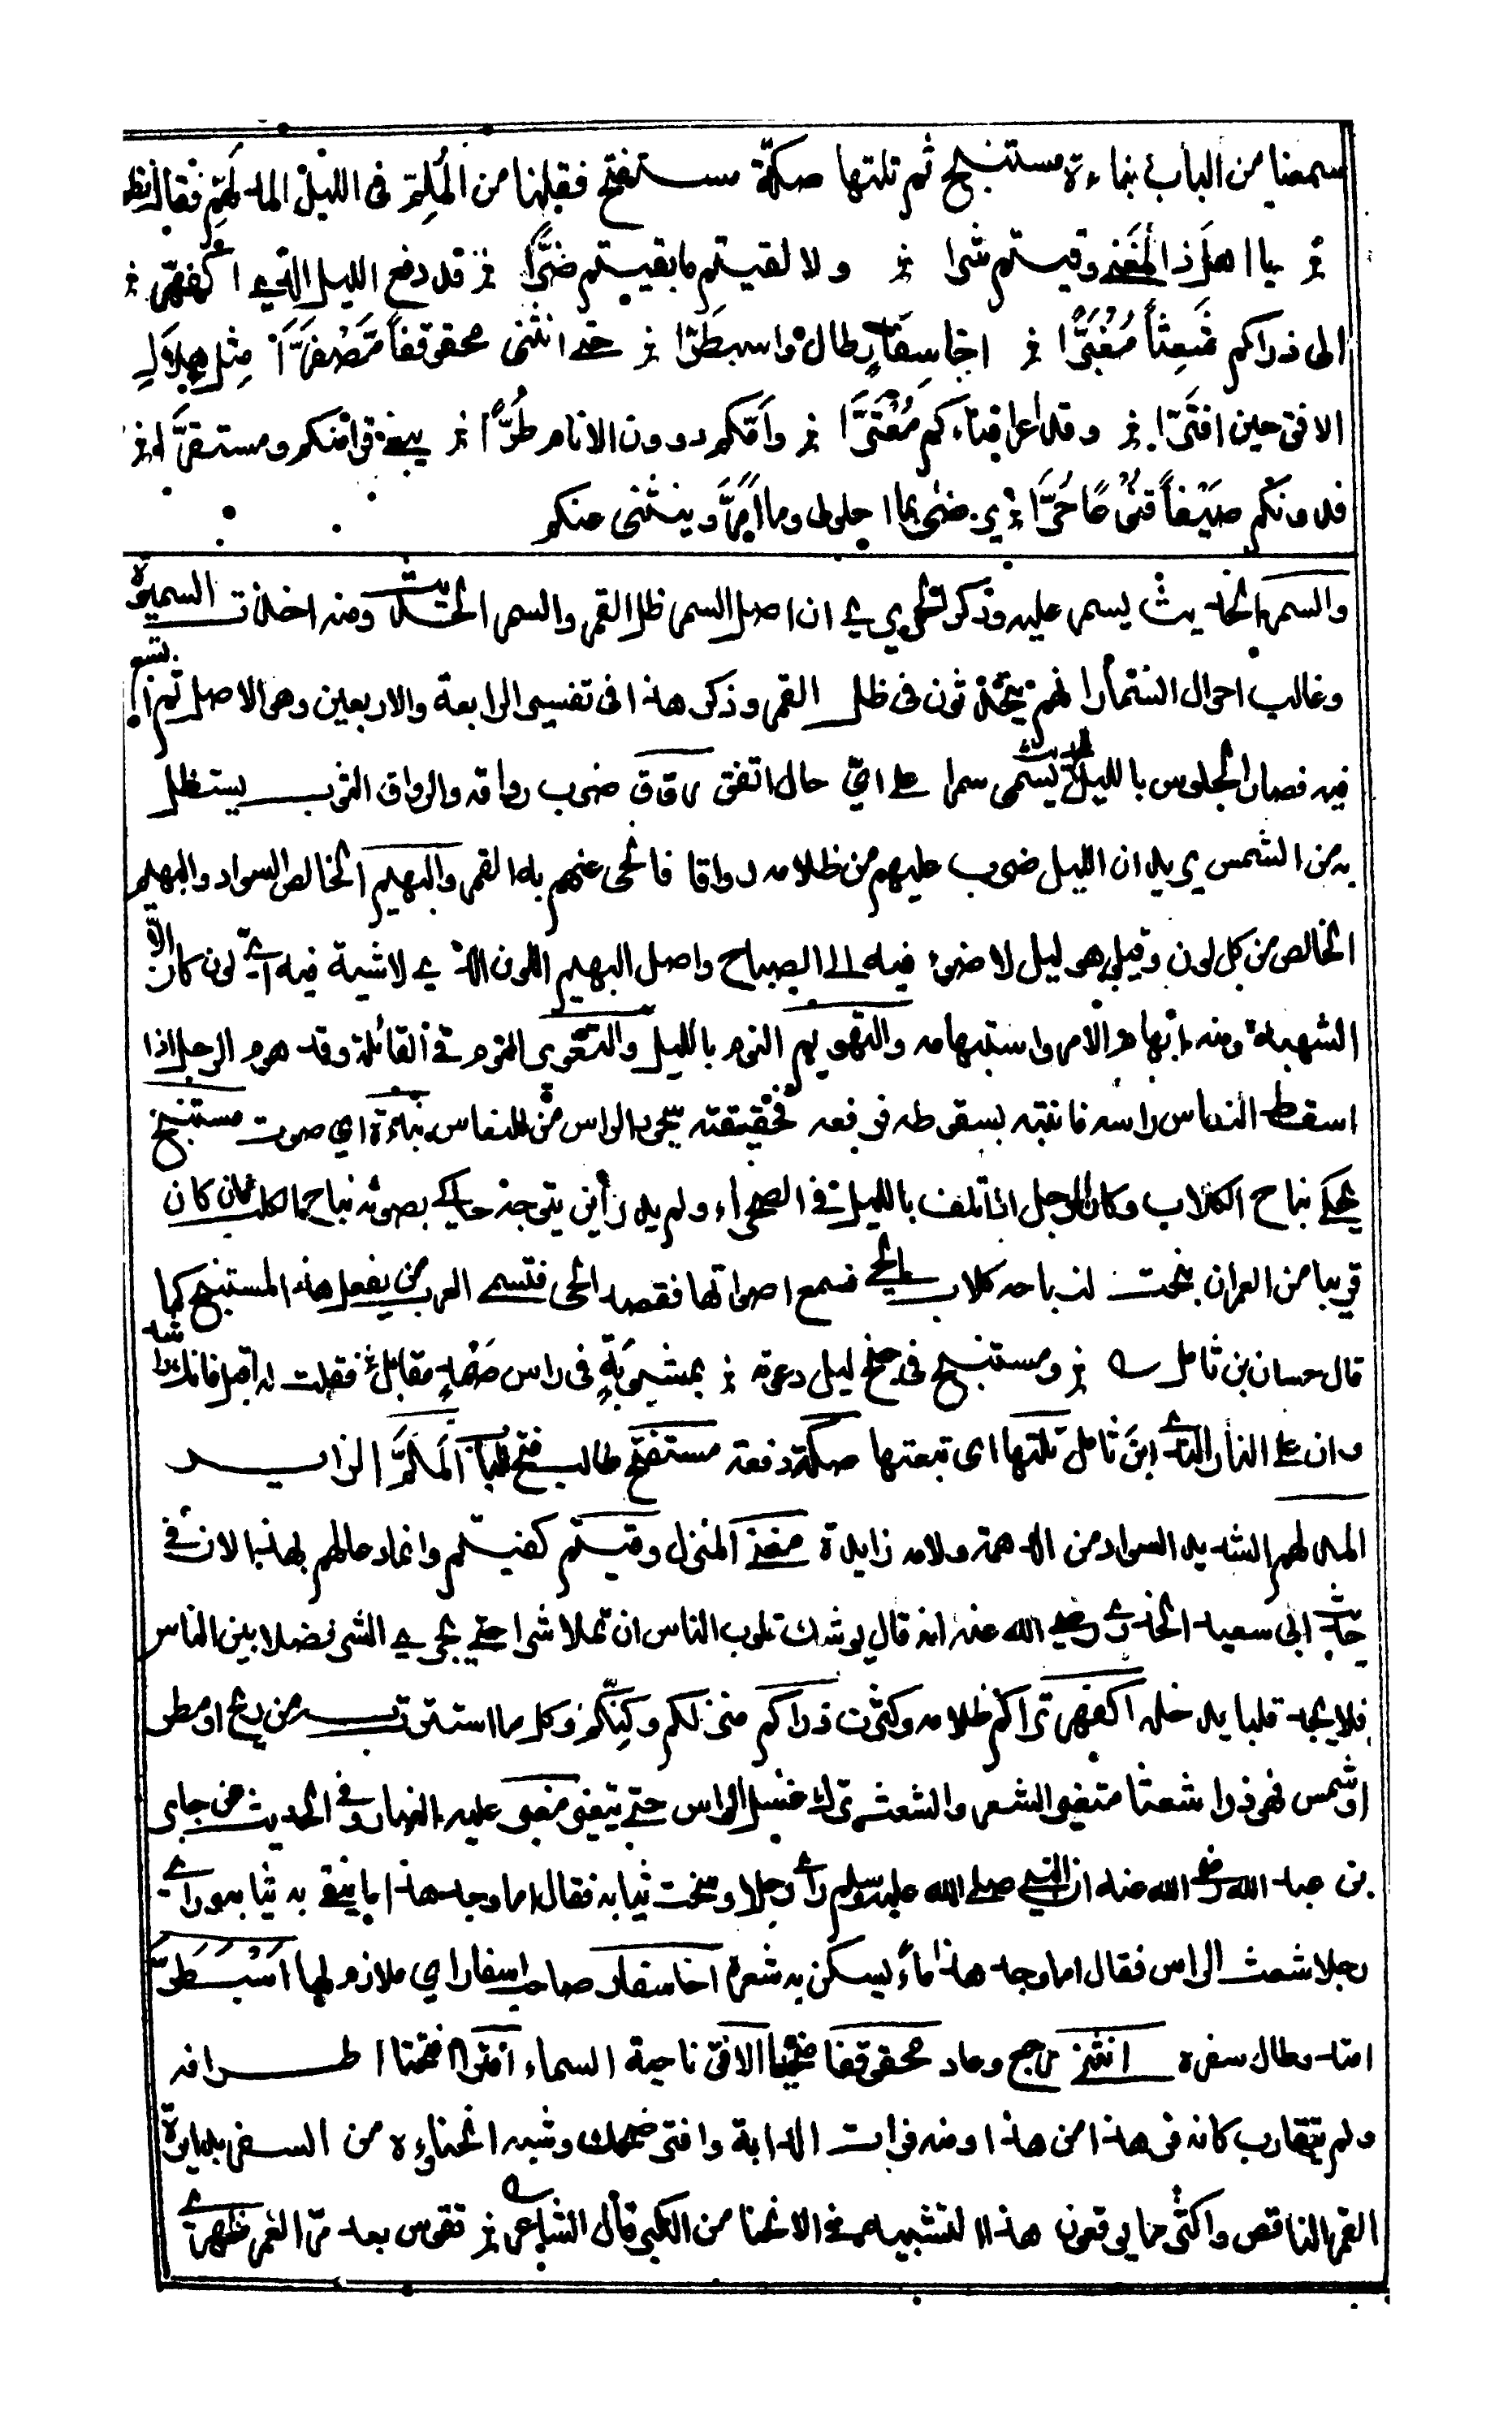 سمعنا من الباب نباءة مستنبح ثم تلتها صكة مستفتح فقلنا من الملم في الليل المدلهم فقال
يا اهل ذا المغنى وقيتم شرا ولا لقيتم ما بقيتم ضرا قد دفع الليل الذي اكفهر
الى ذراكم شعثا مغبرا اخا سفار طال واسبطرا حتى انثنى محقوقفا مصفرا مثل هلال
الافق حين افترا وقد عرا فناءكم معترا وامكم دون الانام طرا يبغى قرا منكم ومستقرا
فدونكم ضيفا قنوعا حرا يرضى بما احلولى وما امرا وينثنى عنكم
والسمر الحديث يسمر عليه وذكر ان اصل السمر ظل القمر والسمر الحديث ومنه اخذت السميرة
وغالب احوال السمار انهم يتحدثون في ظل القمر وذكر هذا في تفسير الرابعة والاربعين وهو الاصل ثم
فيه فصار الجلوس بالليل يسمى سمرا على اي حال اتفق روق ضرب رواقه والرواق الثوب يستظل
به من الشمس يريد ان الليل ضرب عليهم من ظلامه رواقا فانمحى عنهم به القمر والبهيم الخالص السواد والبهيم
الخالص من كل لون وقيل هو ليل لا ضوء فيه الى الصباح واصل البهيم اللون الذي لا شية فيه اي لون كان الا
الشهبة ومنه ابهام الامر واستبهامه والتهويم النوم بالليل والتغوير النوم في القائلة وقد هوم الرجل اذا
اسقط النعاس راسه فانتبه بسقوطه فرفعه فحقيقته تحرك الراس من النعاس نباءة اي صوت مستنبح
يحكي نباح الكلاب وكان الرجل اذا تلف بالليل في الصحراء ولم يدر اين يتوجه حاكى بصوته نباح الكلب فان كان
قريبا من العمران نبحت لنباحه كلاب الحي فسمع اصواتها فقصد الحي فتسمى العرب من يفعل هذا المستنبح كما
قال حسان بن ثامل ومستنبح في جنح ليل دعوته بمشبوبة في راس صمد مقابل فقلت له اقبل فانك راشد
وان على النار الندى وابن ثامل تلتها اى تبعتها صكة دفعة مستفتح طالب فتح الباب الملم الزاير
المدلهم الشديد السواد من الدهمة ولامه زايدة مغنى المنزل وقيتم كفيتم وانما دعا لهم بهذا لان في
حديث ابى سعيد الخدري رضي الله عنه انه قال يوشك قلوب الناس ان تملا شرا حتى يجري الشر فضلا بين الناس
فلا يجد قلبا يدخله اكفهر تراكم ظلامه وكثرت ذراكم منزلكم وكنكم وكل ما استترت به من ريح او مطر
او شمس فهو ذرا شعثا متغير الشعر والشعث ترك غسل الراس حتى يتغير مغبر عليه الغبار وفي الحديث عن جابر
بن عبد الله رضي الله عنه ان النبي صلى الله عليه وسلم راى رجلا وسخت ثيابه فقال اما وجد هذا ما ينقي به ثيابه وراى
رجلا شعث الراس فقال اما وجد هذا ماء يسكن به شعره اخا سفار صاحب اسفار اي ملازم لها اسبطر
امتد وطال سفره انثنى رجع وعاد محقوقفا منحنيا الافق ناحية السماء افتر انفتحتا اطرافه
ولم يتقارب كانه فر هذا من هذا ومنه فررت الدابة وافتر ضحك وشبه انحناوءه من السفر بدايرة
القمر الناقص واكثر ما يوقعون هذا التشبيه في الانحنا من الكبر قال الشاعر تقوس بعد مر العمر ظهرى